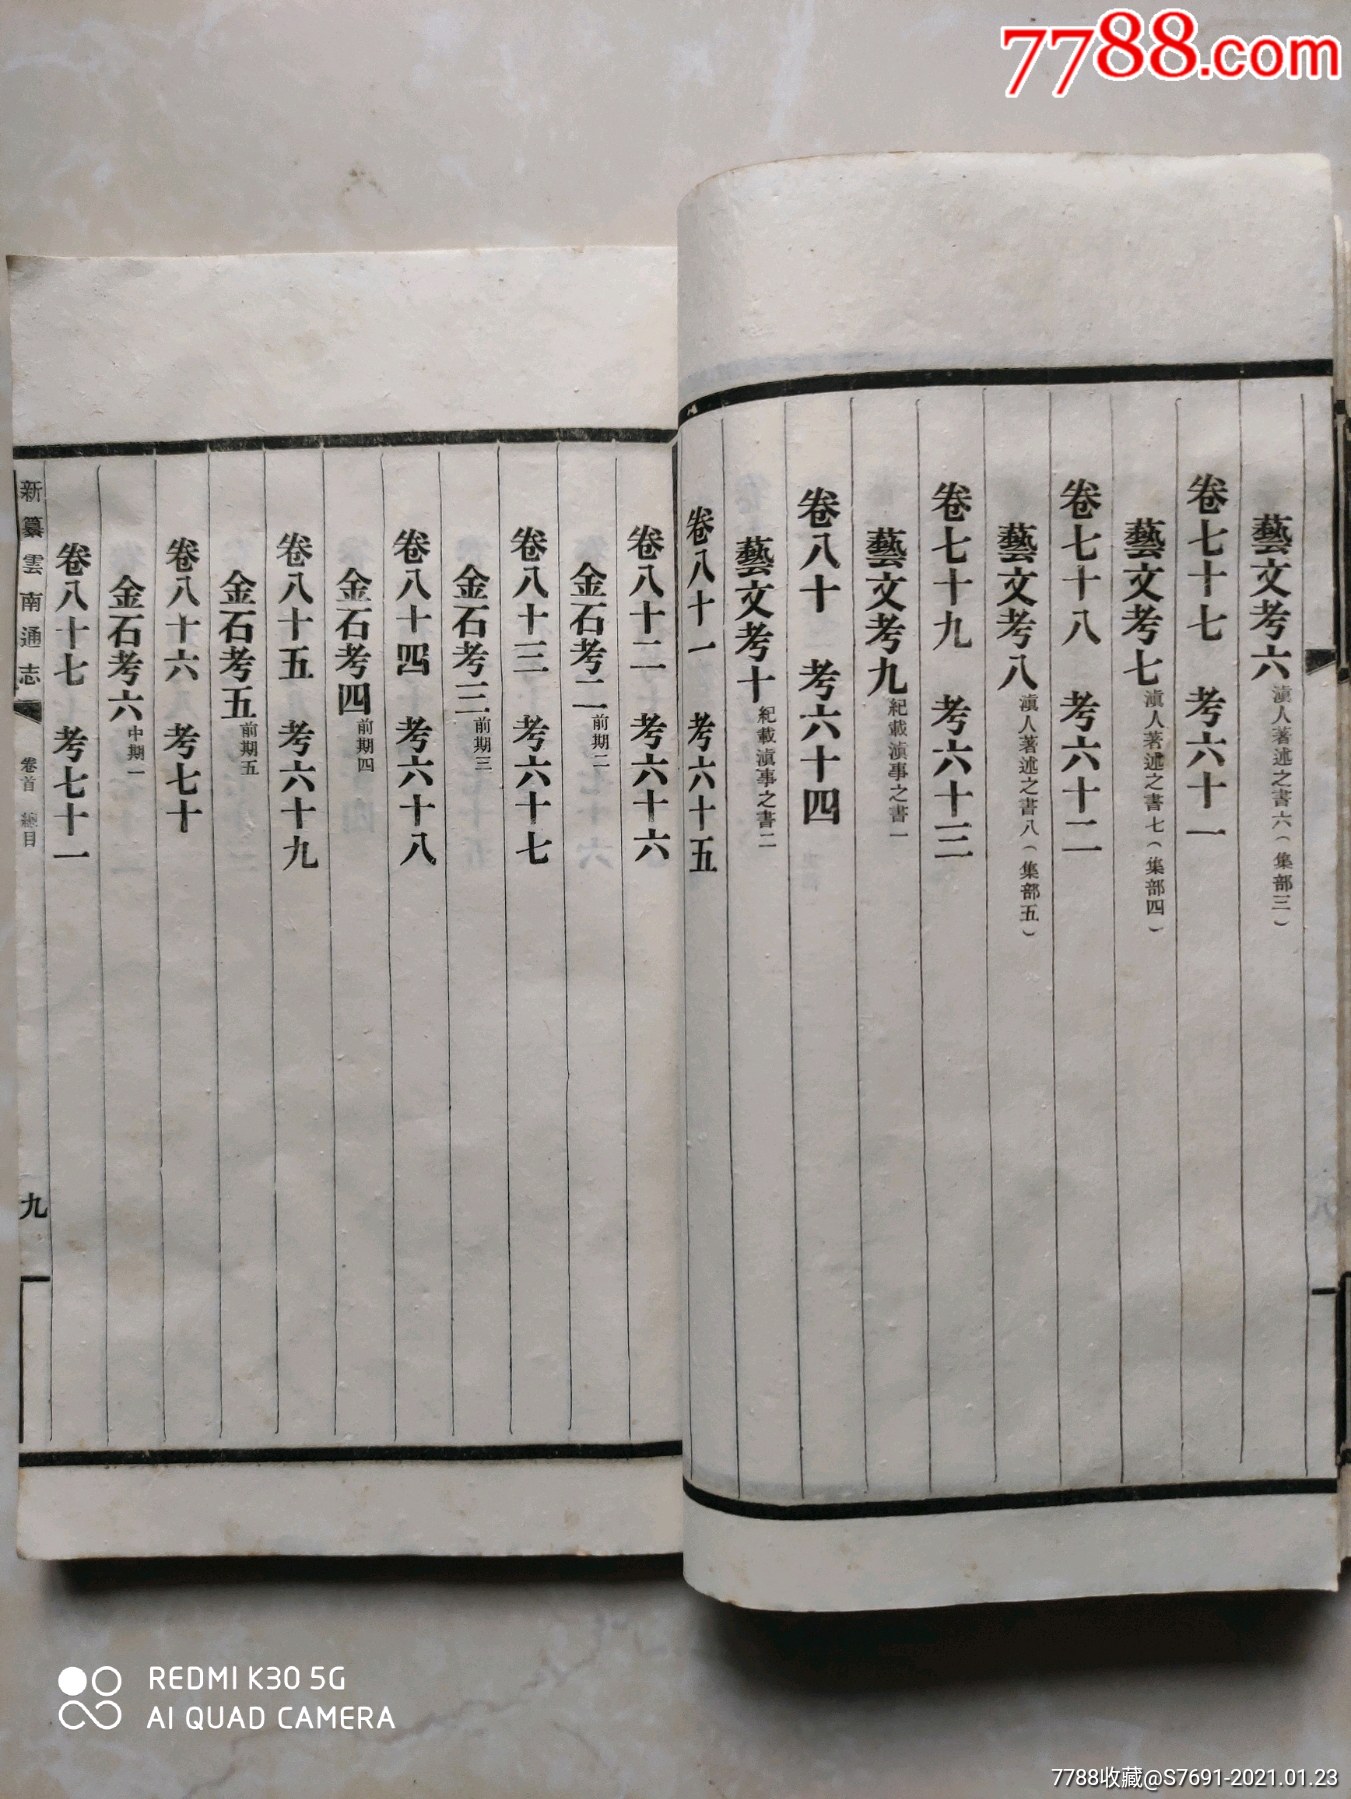 7788.com
藝文考六滇人著述之書六（集部三）
卷七十七　考六十一
藝文考七滇人著述之書七（集部四）
卷七十八　考六十二
藝文考八滇人著述之書八（集部五）
卷七十九　考六十三
藝文考九紀載滇事之書一
卷八十　考六十四
藝文考十紀載滇事之書二
卷八十一　考六十五
卷八十二　考六十六
金石考二前期二
卷八十三　考六十七
金石考三前期三
卷八十四　考六十八
金石考四前期四
卷八十五　考六十九
金石考五前期五
卷八十六　考七十
金石考六中期一
卷八十七　考七十一
新纂雲南通志　卷首　總目　九
REDMI K30 5G
AI QUAD CAMERA
7788收藏@S7691-2021.01.23